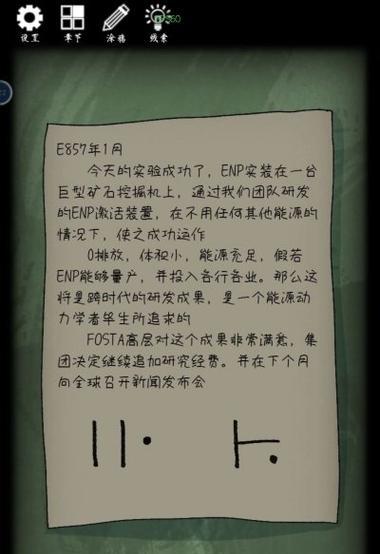 设置 章节 涂鸦 线索
E857年1月
今天的实验成功了，ENP实装在一台
巨型矿石挖掘机上，通过我们团队研发
的ENP激活装置，在不用任何其他能源的
情况下，使之成功运作
0排放，体积小，能源充足，假若
ENP能够量产，并投入各行各业。那么这
将是跨时代的研发成果，是一个能源动
力学者毕生所追求的
FOSTA高层对这个成果非常满意，集
团决定继续追加研究经费。并在下个月
向全球召开新闻发布会